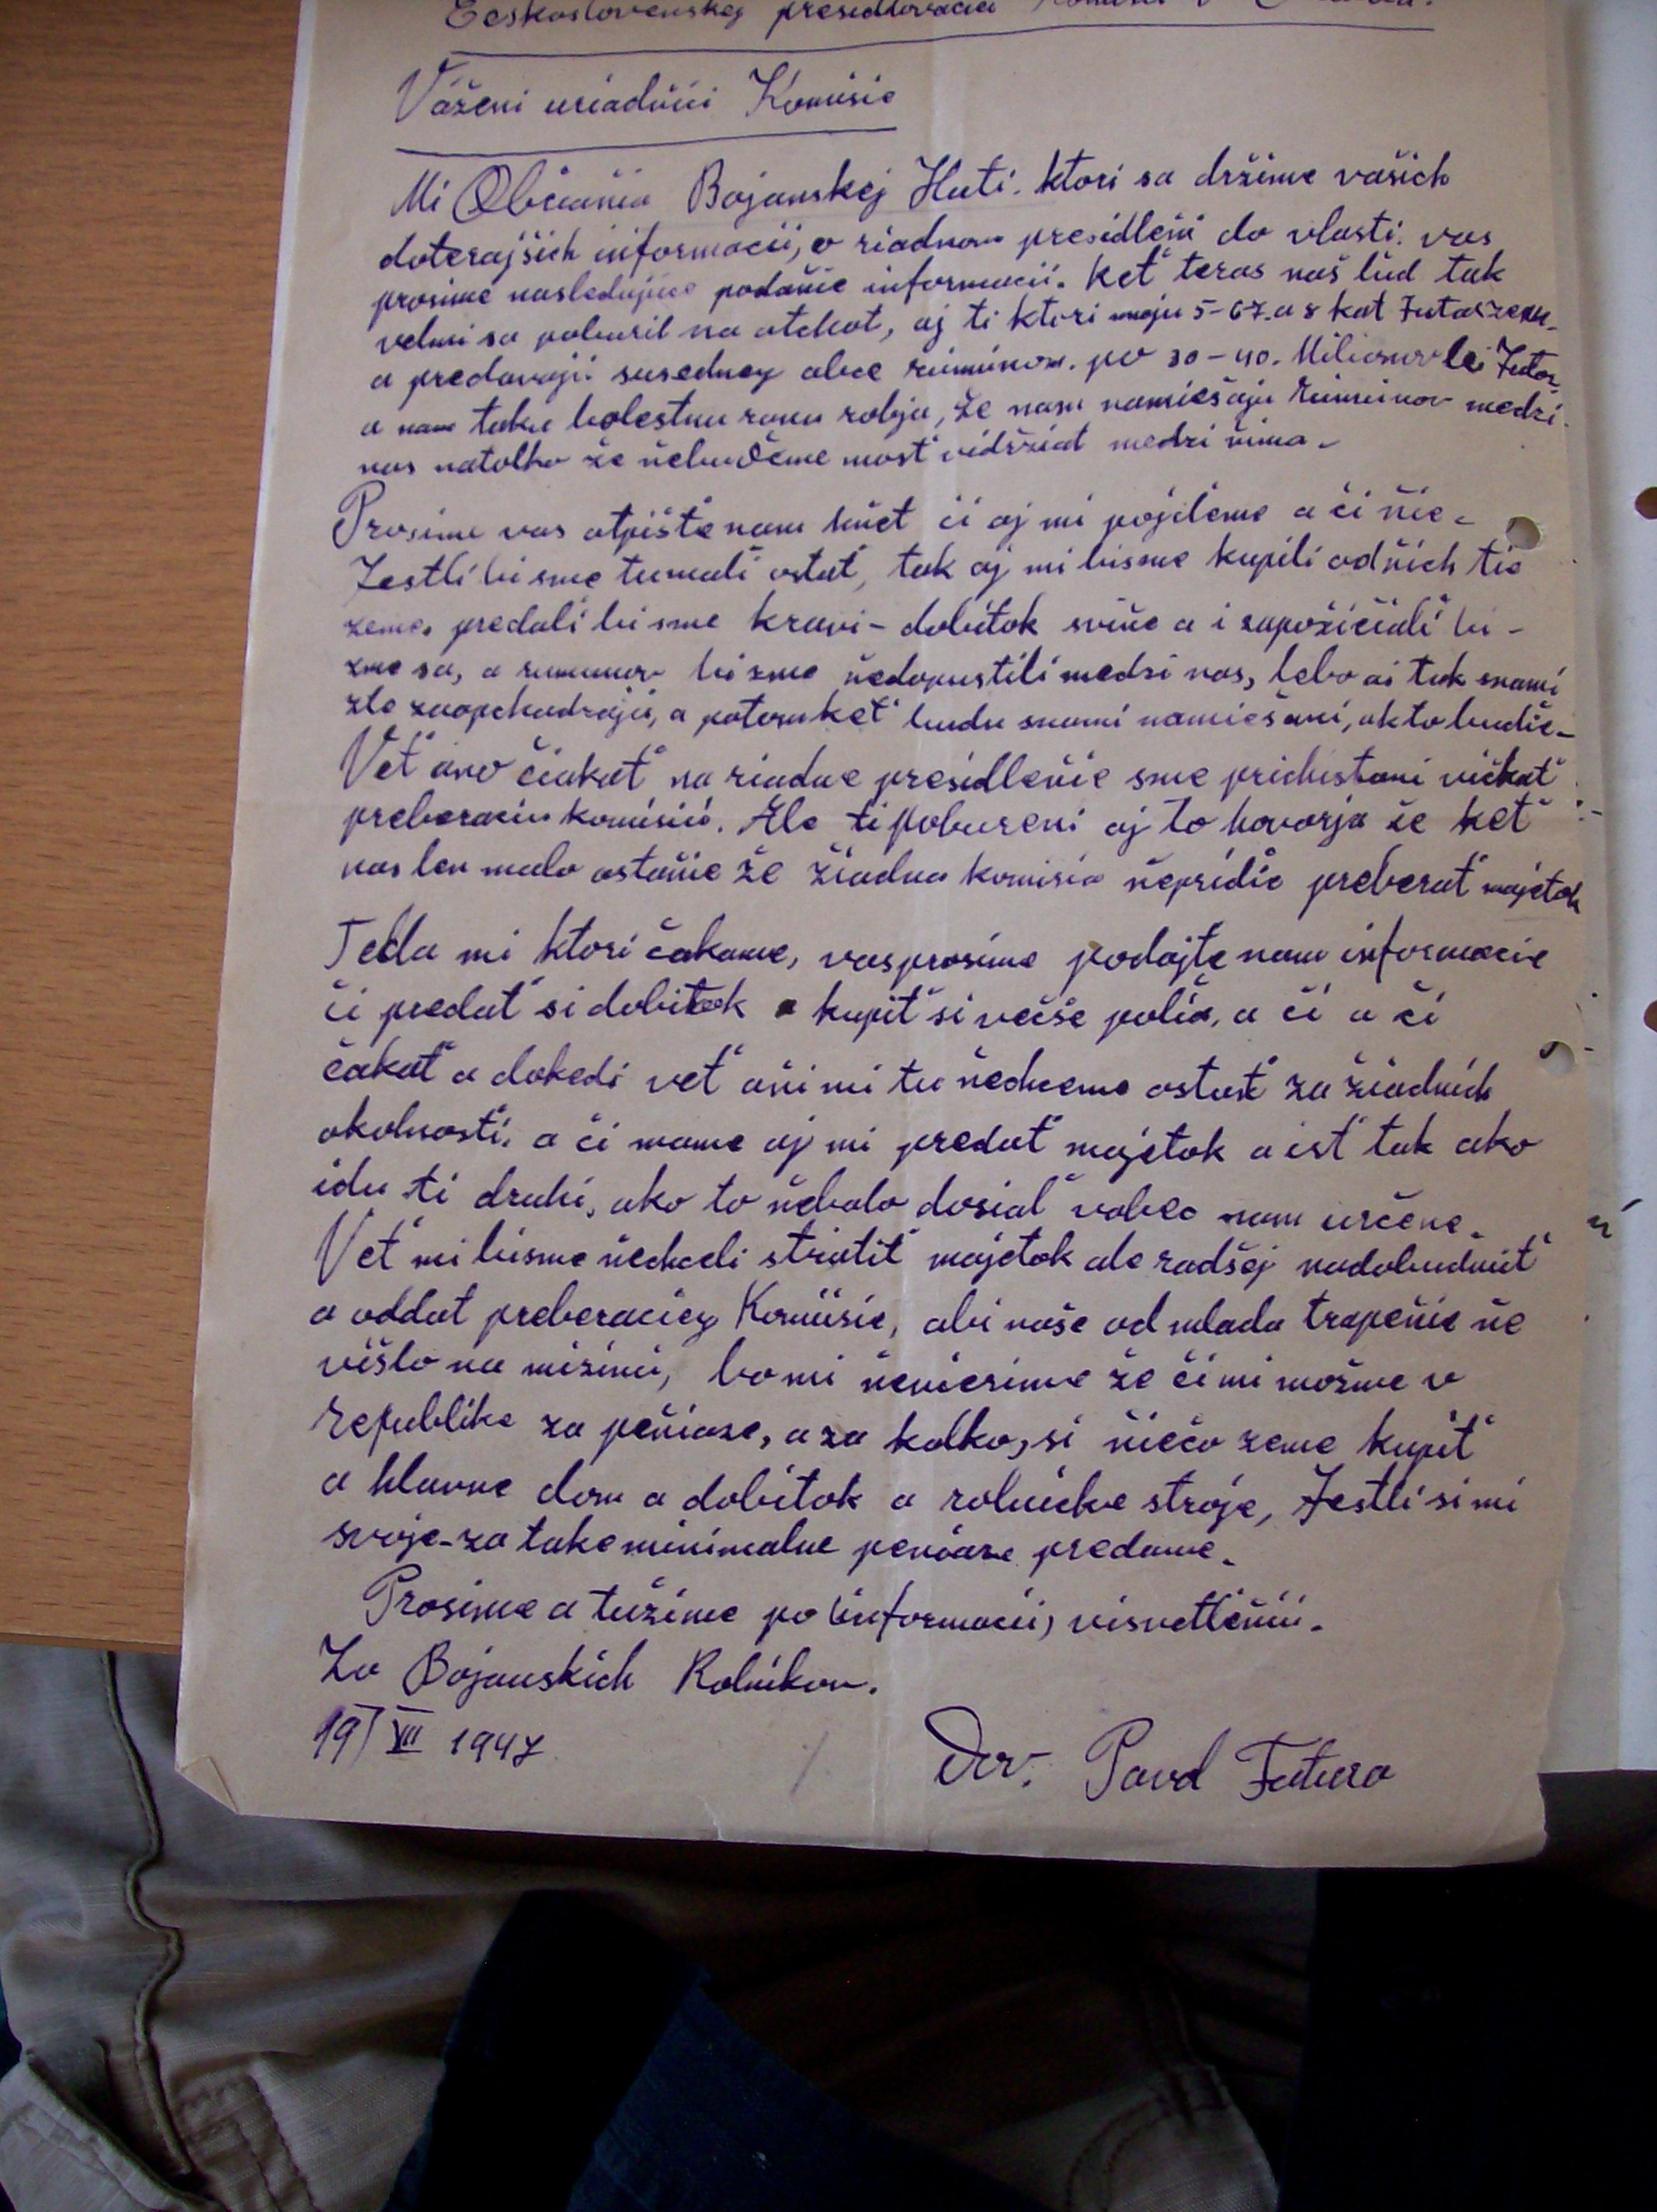 Československej presidlovacej
Važeni uriadňici Komisie
Mi Občaňia Bojanskej Huti. ktori sa držime vašich
doterajšich informacii, o riadnom presidleňi do vlasti. vas
prosime nasledujuce podaňie informacii. Keť teras naš lud tak
velmi sa poburil na otchot, aj ti ktori maju 5-67.a 8 kat Jutar zeme
a predavaju susednej obce rumunom. po 30-40. Milionov lei Jutar
a nam taku bolestnu ranu robja, že nam namiešaju Rumunov medzi
nas natolko že ňebuďeme mosť vidržiat medzi ňima.
Prosime vas otpište nam hňet či aj mi pojďeme a či ňie.
Jestli bi sme tu mali ostať, tak aj mi bisme kupili od ňich tie
zeme, predali bi sme kravi - dobitok sviňe a i zapožičiali bi -
zme sa, a rumunov bi zme ňedopustili medzi nas, lebo ai tak snami
zle zaopchadzaju, a potom keť budu snami namiešani, ak to buďie.
Veť ano čiakať na riadne presidleňie sme prichistani vičkať
preberaciu komisiu. Ale ti pobureni aj to hovorja že keť
nas len malo ostaňie že žiadna komisia ňepriďie preberať majetok
Teda mi ktori čakame, vas prosime podajte nam informacie
či predať si dobitok a kupiť si večše polia, a či a či
čakať a dokedi veť aňi mi tu ňechceme ostať za žiadnich
okolnosti. a či mame aj mi predať majetok a isť tak ako
idu ti druhi, ako to ňebolo dosial vobec nam určene.
Veť mi bisme ňechceli stratiť majetok ale radšej nadobudnuť
a oddat preberaciej Komisie, abi naše od mlada trapeňie ňe
višlo na mizinu, bo mi ňevierime že či mi možme v
republike za peňiaze, a za kolko, si ňiečo zeme kupiť
a hlavne dom a dobitok a rolnicke stroje, Jestli si mi
svoje - za take minimalne peniaze predame.
Prosime a tužime po (informacii) visvetleňii.
Za Bojanskich Rolnikov.
19/VII 1947
dov. Pavel Futura